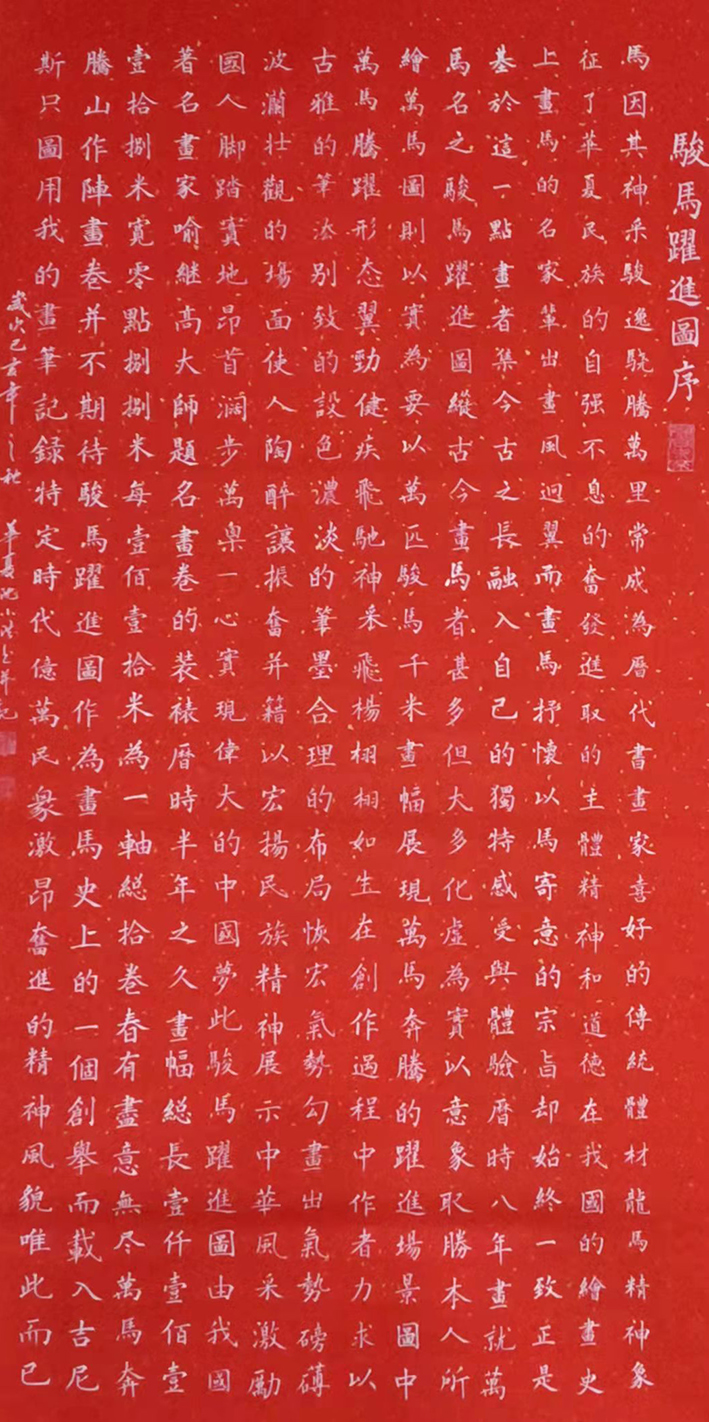 駿馬躍進圖序
馬因其神采駿逸驍騰萬里常成為曆代書畫家喜好的傳統體材龍馬精神象
征了華夏民族的自强不息的奮發進取的主體精神和道德在我國的繪畫史
上畫馬的名家輩出畫風迥翼而畫馬抒懷以馬寄意的宗旨却始終一致正是
基於這一點畫者集今古之長融入自己的獨特感受與體驗曆時八年畫就萬
馬名之駿馬躍進圖縱古今畫馬者甚多但大多化虛為實以意象取勝本人所
繪萬馬圖則以實為要以萬匹駿馬千米畫幅展現萬馬奔騰的躍進場景圖中
萬馬騰躍形态翼勁健疾飛馳神采飛楊栩栩如生在創作過程中作者力求以
古雅的筆法别致的設色濃淡的筆墨合理的布局恢宏氣勢勾畫出氣勢磅礴
波瀾壮觀的場面使人陶醉讓振奮并籍以宏揚民族精神展示中華風采激勵
國人脚踏實地昂首濶步萬衆一心實現偉大的中國夢此駿馬躍進圖由我國
著名畫家喻継高大師題名畫卷的装裱曆時半年之久畫幅総長壹仟壹佰壹
壹拾捌米寛零點捌捌米每壹佰壹拾米為一軸総拾卷春有盡意無尽萬馬奔
騰山作陣畫卷并不期待駿馬躍進圖作為畫馬史上的一個創舉而載入吉尼
斯只圖用我的畫筆記録特定時代億萬民衆激昂奮進的精神風貌唯此而已
歲次己亥年之秋 華夏